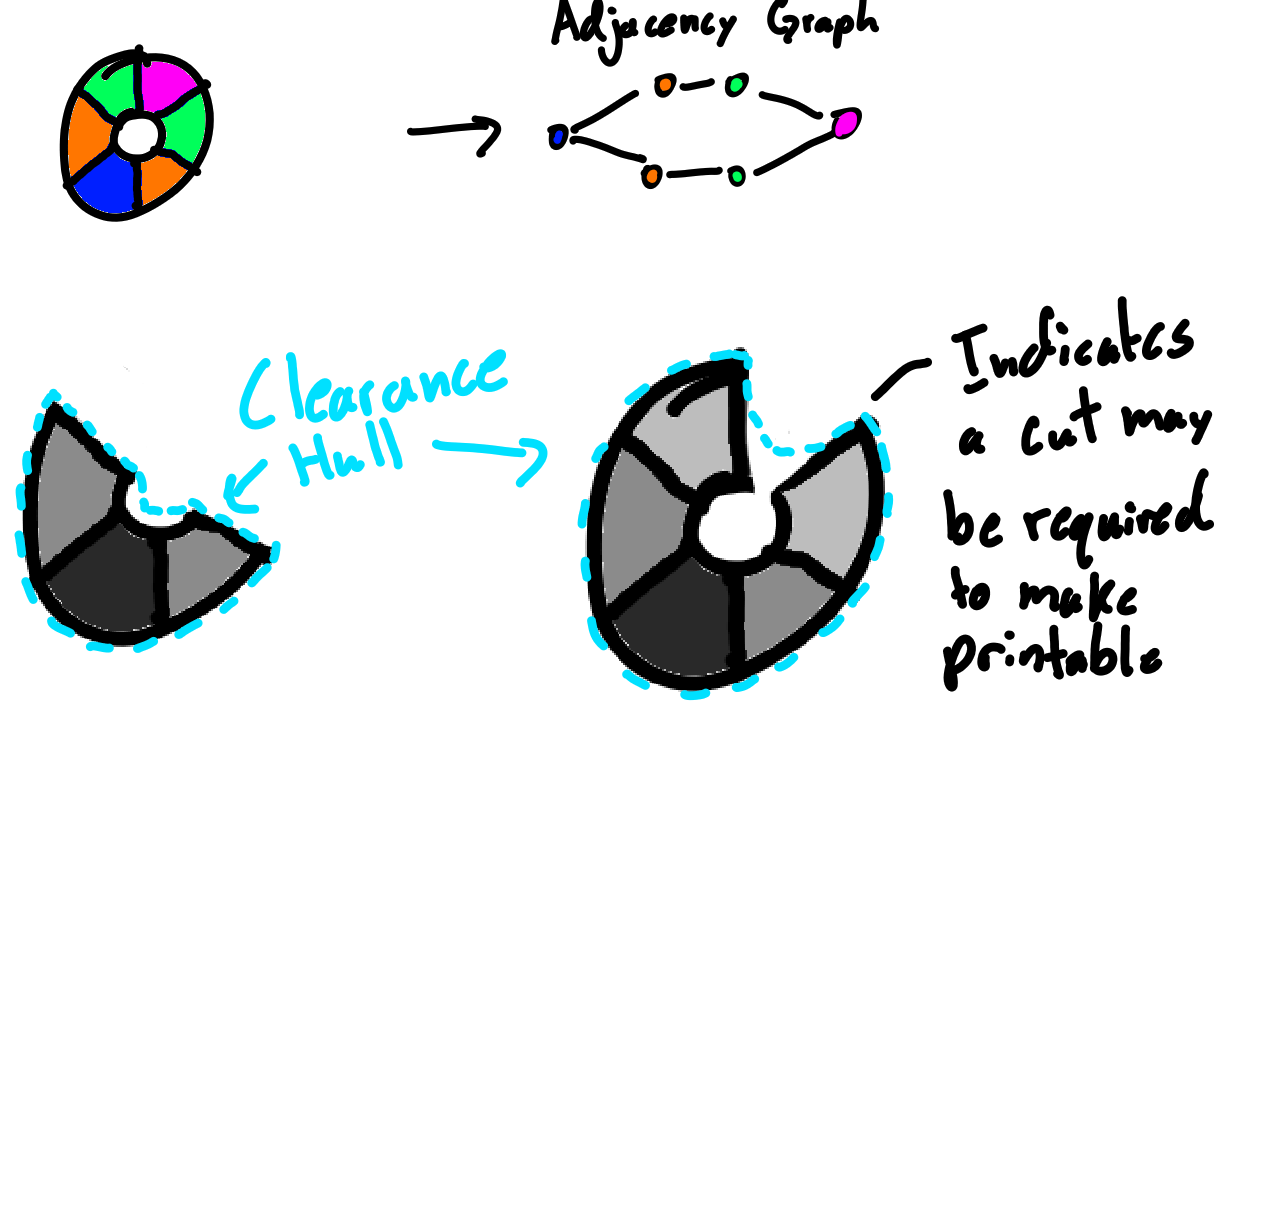 Adjacency Graph
Clearance
Hull
Indicates
a cut may
be required
to make
printable